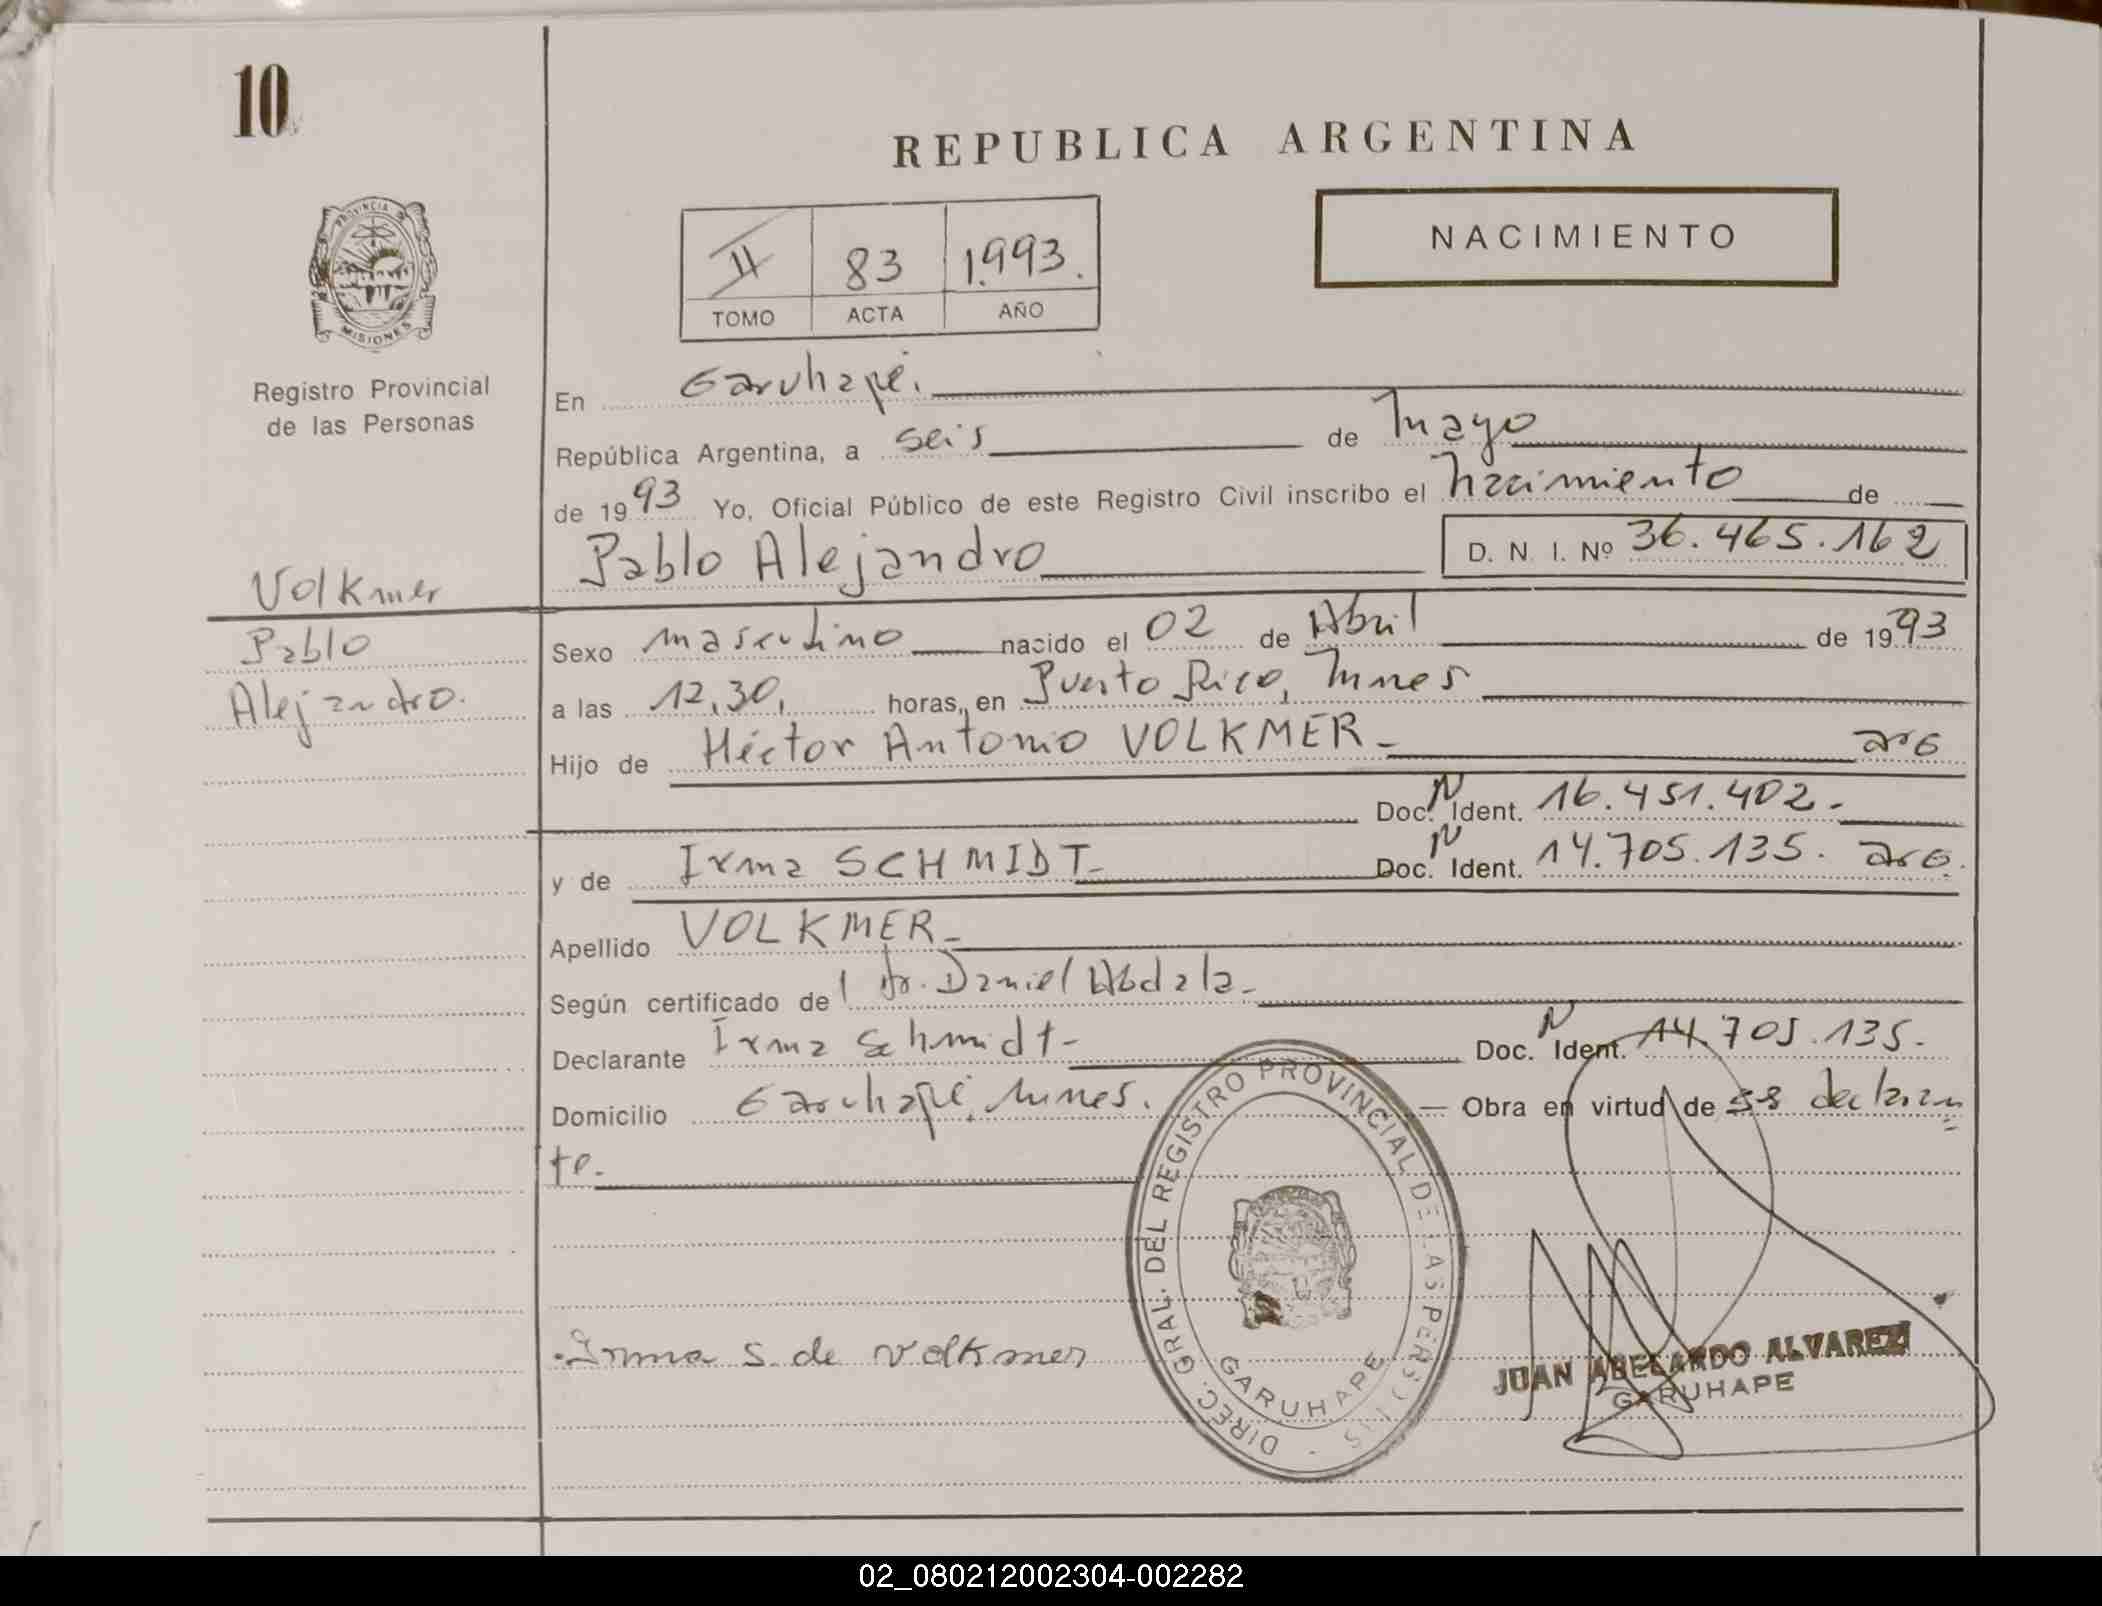 10
REPUBLICA ARGENTINA
NACIMIENTO
II 83 1.993.
TOMO ACTA AÑO
PROVINCIA DE MISIONES
Registro Provincial
de las Personas
En Garuhapé.
República Argentina, a seis de Mayo
de 1993 Yo, Oficial Público de este Registro Civil inscribo el nacimiento de
Pablo Alejandro D. N. I. Nº 36.465.162
Volkmer
Pablo
Alejandro.
Sexo masculino nacido el 02 de Abril de 1993
a las 12,30, horas, en Puerto Rico, Mnes
Hijo de Héctor Antonio VOLKMER - arG
Doc. N Ident. 16.451.402.-
y de Irma SCHMIDT- Doc. N Ident. 14.705.135. arG.
Apellido VOLKMER-
Según certificado del Dr. Daniel Abdala-
Declarante Irma Schmidt- Doc. N Ident. 14.705.135.
Domicilio Garuhapé, Mnes. — Obra en virtud de ser declaran
te.
DIREC. GRAL. DEL REGISTRO PROVINCIAL DE LAS PERS.
GARUHAPE
Irma S. de Volkmer
JUAN ABELARDO ALVAREZ
GARUHAPE
02_080212002304-002282